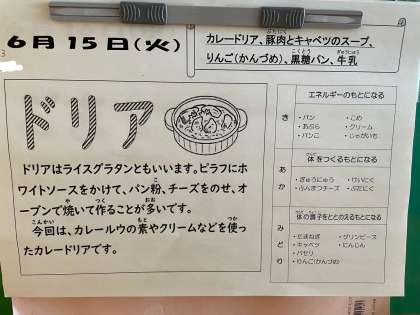 6月15日(火)
カレードリア、豚肉とキャベツのスープ、
りんご(かんづめ)、黒糖パン、牛乳
ドリア
ドリアはライスグラタンともいいます。ピラフにホ
ワイトソースをかけて、パン粉、チーズをのせ、オ
ーブンで焼いて作ることが多いです。
今回は、カレールウの素やクリームなどを使っ
たカレードリアです。
エネルギーのもとになる
き
・パン ・こめ
・あぶら ・クリーム
・パンこ ・じゃがいも
体をつくるもとになる
あか
・ぎゅうにゅう ・けいにく
・ふんまつチーズ ・ぶたにく
体の調子をととのえるもとになる
みどり
・たまねぎ ・グリンピース
・キャベツ ・にんじん
・パセリ
・りんご(かんづめ)